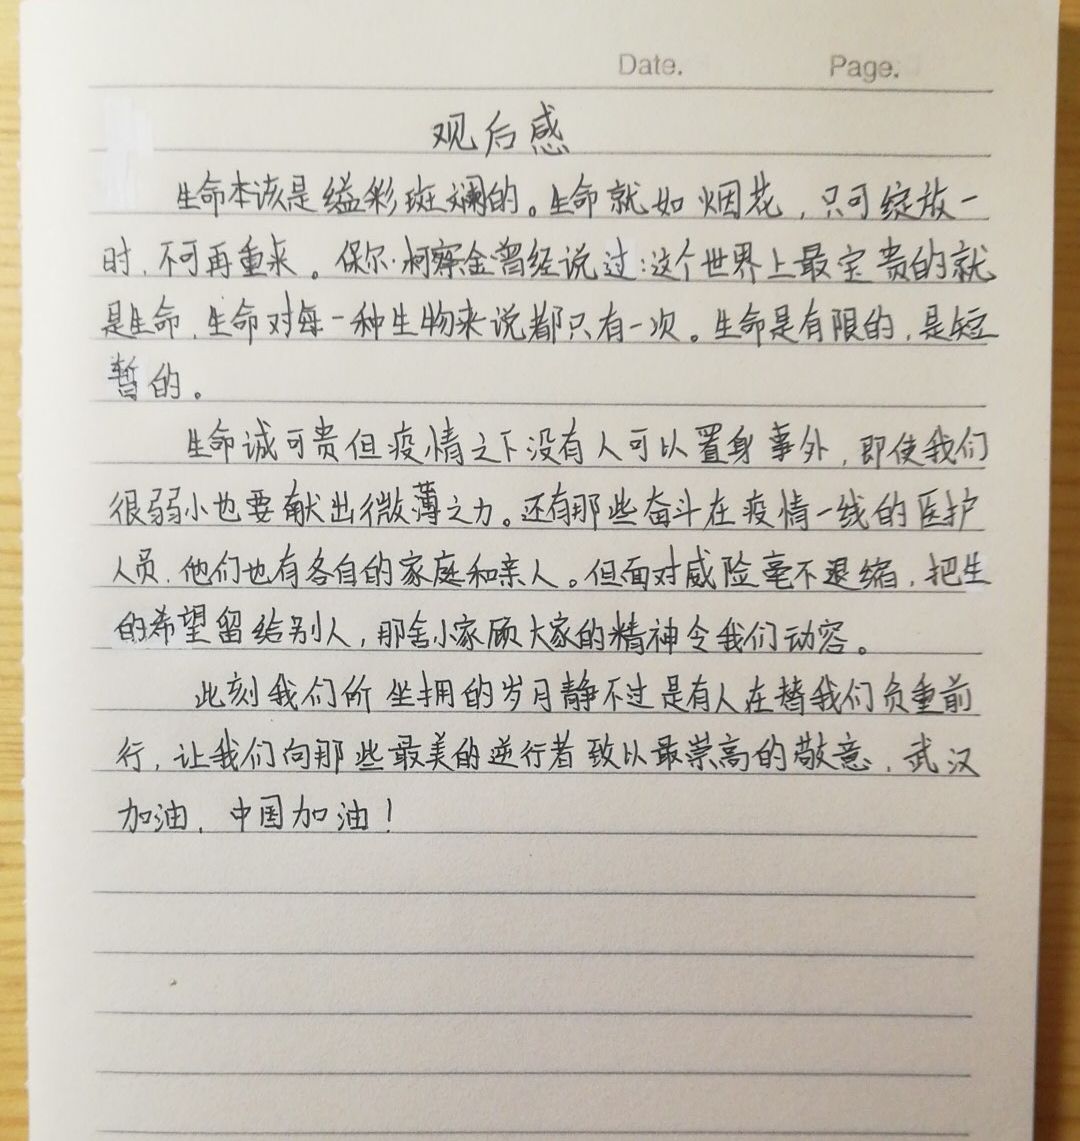 Date. Page.
观后感
生命本该是缤彩斑斓的。生命就如烟花，只可绽放一
时，不可再重来。保尔·柯察金曾经说过：这个世界上最宝贵的就
是生命，生命对每一种生物来说都只有一次。生命是有限的，是短
暂的。
生命诚可贵但疫情之下没有人可以置身事外，即使我们
很弱小也要献出微薄之力。还有那些奋斗在疫情一线的医护
人员，他们也有各自的家庭和亲人。但面对威险毫不退缩，把生
的希望留给别人，那舍小家顾大家的精神令我们动容。
此刻我们所坐拥的岁月静不过是有人在替我们负重前
行，让我们向那些最美的逆行者致以最崇高的敬意，武汉
加油，中国加油！